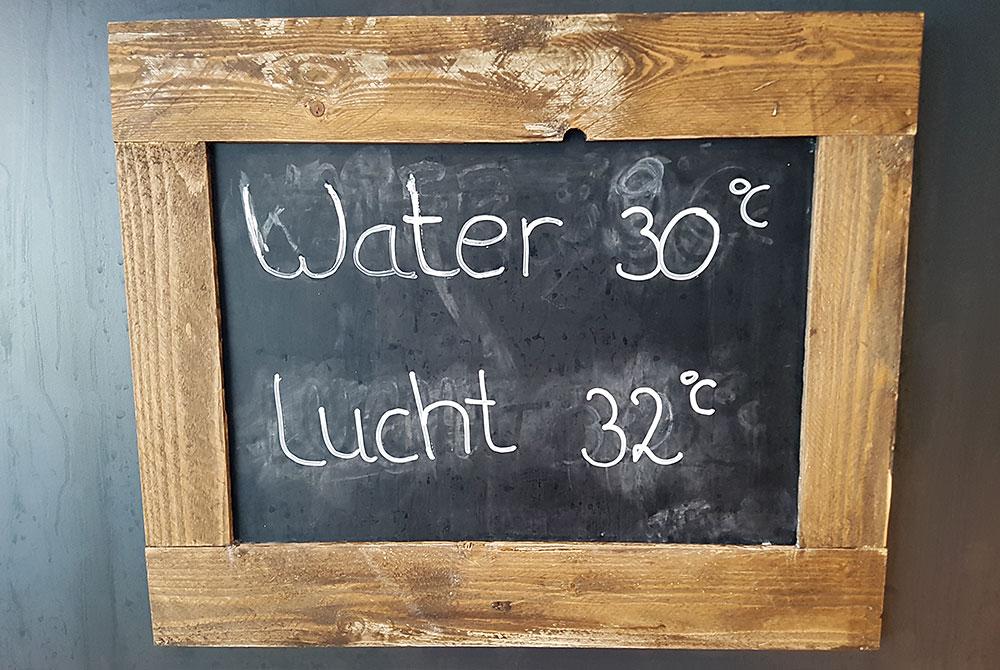 Water 30°C
Lucht 32°C